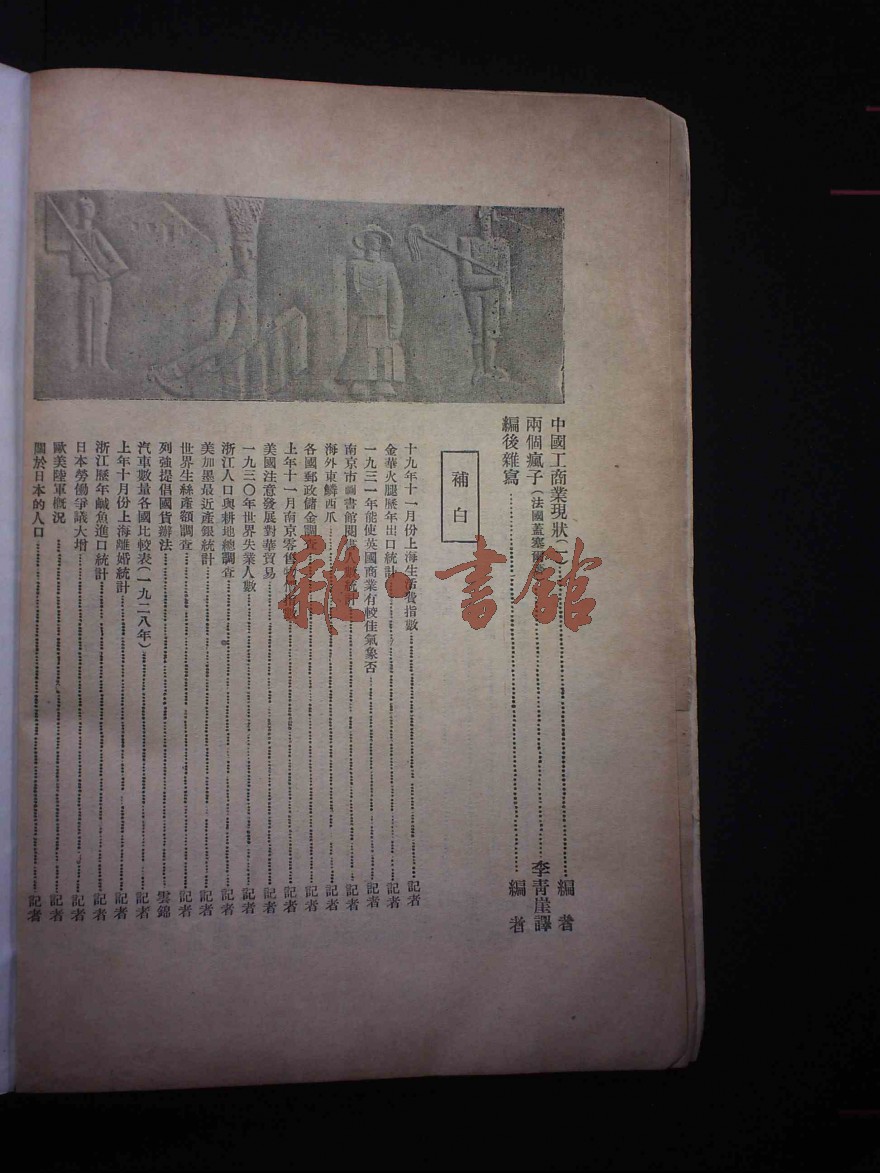 中國工商業現狀(一)……編者
兩個瘋子(法國蓋……李青崖譯
編後雜寫……編者
補白
十九年十一月份上海生活費指數……記者
金華火腿歷年出口統計……記者
一九三一年能使英國商業有較佳氣象否……記者
南京市圖書館閱書人數統計……記者
海外東鱗西爪……記者
各國郵政儲金調查……記者
上年十一月南京零售物價指數……記者
美國注意發展對華貿易……記者
一九三〇年世界失業人數……記者
浙江人口與耕地總調查……記者
美加墨最近產銀統計……記者
世界生絲產額調查……記者
列強提倡國貨辦法……雲錦
汽車數量各國比較表(一九二八年)……記者
上年十月份上海離婚統計……記者
浙江歷年鹹魚進口統計……記者
日本勞働爭議大增……記者
歐美陸軍概況……記者
關於日本的人口……記者
雜·書館